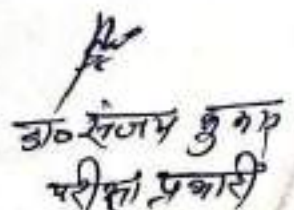 डा० संजय कुमार
परीक्षा प्रभारी